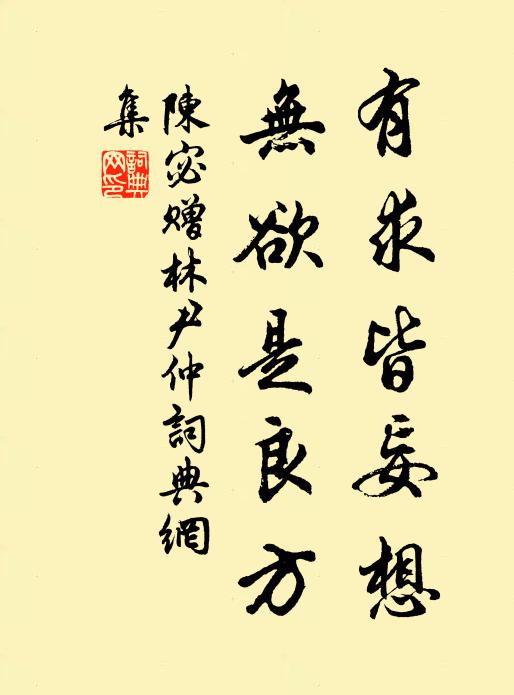 有求皆妄想
無欲是良方
陳宓贈林尹仲詞典網
集
詞典网印